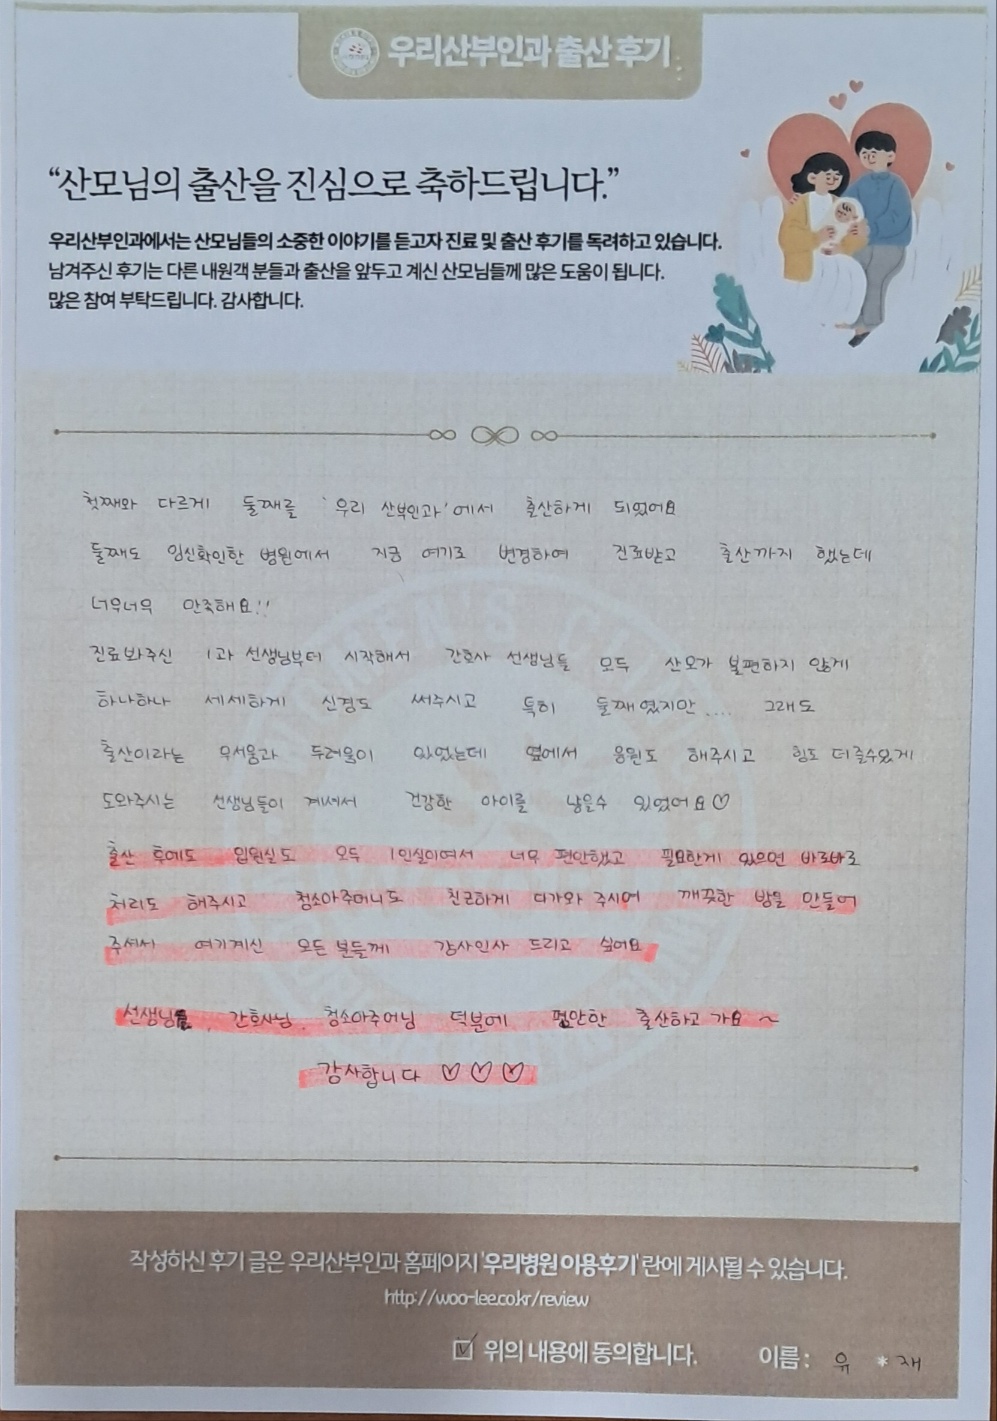 우리산부인과 출산 후기
“산모님의 출산을 진심으로 축하드립니다.”
우리산부인과에서는 산모님들의 소중한 이야기를 듣고자 진료 및 출산 후기를 독려하고 있습니다.
남겨주신 후기는 다른 내원객 분들과 출산을 앞두고 계신 산모님들께 많은 도움이 됩니다.
많은 참여 부탁드립니다. 감사합니다.
첫째와 다르게 둘째를 '우리 산부인과'에서 출산하게 되었어요
둘째도 임신확인한 병원에서 지금 여기로 변경하여 진료받고 출산까지 했는데
너무너무 만족해요!!
진료봐주신 1과 선생님부터 시작해서 간호사 선생님들 모두 산모가 불편하지 않게
하나하나 세세하게 신경도 써주시고 특히 둘째였지만 .... 그래도
출산이라는 무서움과 두려움이 있었는데 옆에서 응원도 해주시고 힘도 더줄수있게
도와주시는 선생님들이 계셔서 건강한 아이를 낳을수 있었어요♡
출산 후에도 입원실도 모두 1인실이여서 너무 편안했고 필요한게 있으면 바로바로
처리도 해주시고 청소아주머니도 친근하게 다가와 주시어 깨끗한 방을 만들어
주셔서 여기계신 모든 분들께 감사인사 드리고 싶어요
선생님들, 간호사님, 청소아주머님 덕분에 편안한 출산하고 가요~
감사합니다 ♡♡♡
작성하신 후기 글은 우리산부인과 홈페이지 '우리병원 이용후기' 란에 게시될 수 있습니다.
http://woo-lee.co.kr/review
위의 내용에 동의합니다. 이름 : 유 * 재